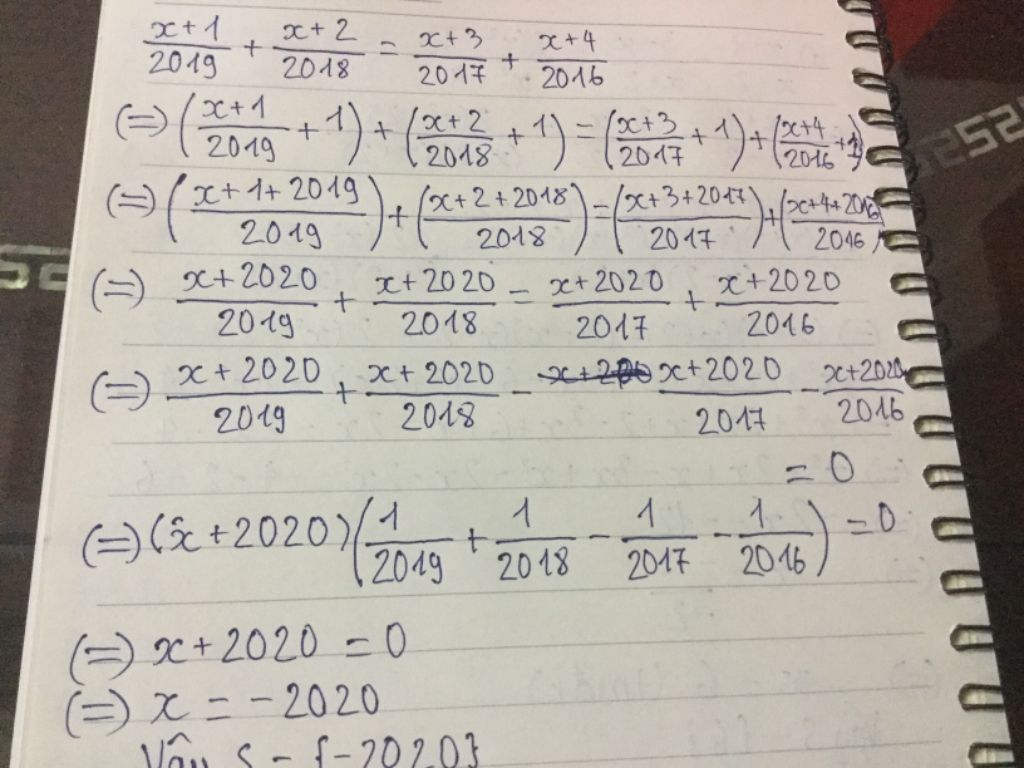 (x+1)/2019 + (x+2)/2018 = (x+3)/2017 + (x+4)/2016
(=) ((x+1)/2019 + 1) + ((x+2)/2018 + 1) = ((x+3)/2017 + 1) + ((x+4)/2016 + 1)
(=) ((x+1+2019)/2019) + ((x+2+2018)/2018) = ((x+3+2017)/2017) + ((x+4+2016)/2016)
(=) (x+2020)/2019 + (x+2020)/2018 = (x+2020)/2017 + (x+2020)/2016
(=) (x+2020)/2019 + (x+2020)/2018 - (x+2020)/2017 - (x+2020)/2016
= 0
(=) (x+2020)(1/2019 + 1/2018 - 1/2017 - 1/2016) = 0
(=) x+2020 = 0
(=) x = -2020
Vậy S = {-2020}
525